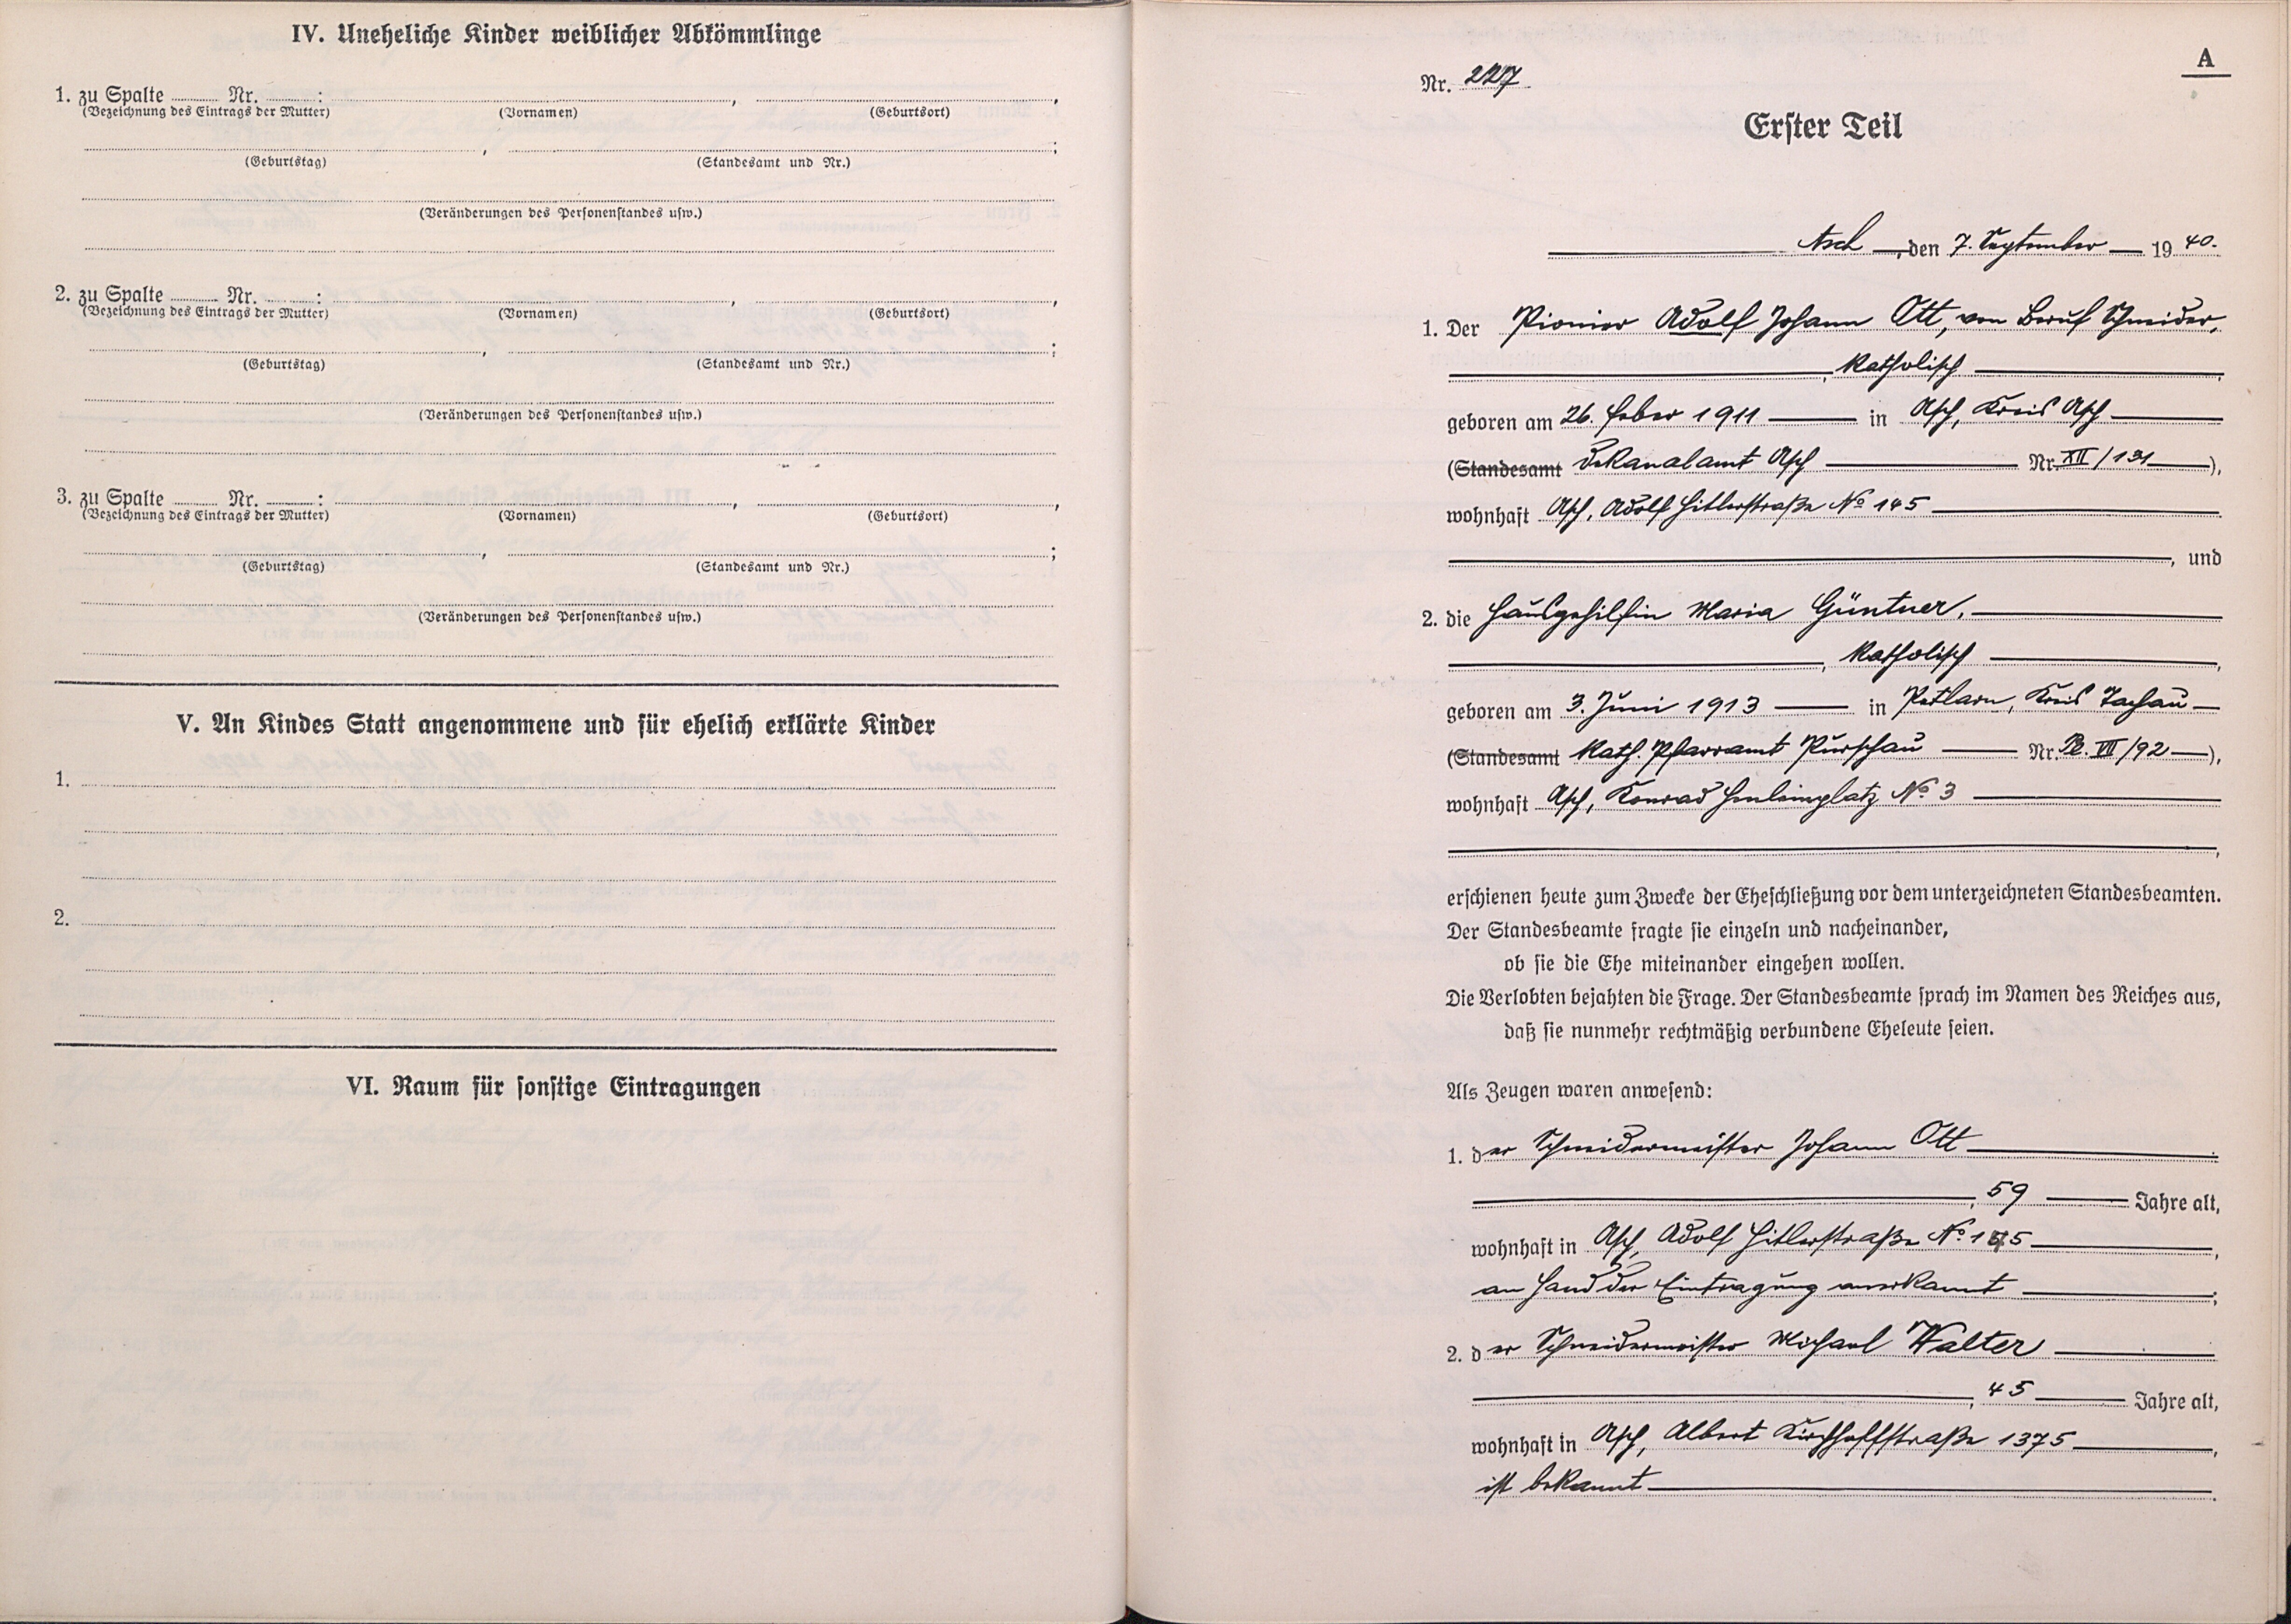 IV. Uneheliche Kinder weiblicher Abkömmlinge
1. zu Spalte ........ Nr. ........ : ........ , ........ ,
(Bezeichnung des Eintrags der Mutter) (Vornamen) (Geburtsort)
........ , ........ ;
(Geburtstag) (Standesamt und Nr.)
(Veränderungen des Personenstandes usw.)
2. zu Spalte ........ Nr. ........ : ........ , ........ ,
(Bezeichnung des Eintrags der Mutter) (Vornamen) (Geburtsort)
........ , ........ ;
(Geburtstag) (Standesamt und Nr.)
(Veränderungen des Personenstandes usw.)
3. zu Spalte ........ Nr. ........ : ........ , ........ ,
(Bezeichnung des Eintrags der Mutter) (Vornamen) (Geburtsort)
........ , ........ ;
(Geburtstag) (Standesamt und Nr.)
(Veränderungen des Personenstandes usw.)
V. An Kindes Statt angenommene und für ehelich erklärte Kinder
1.
2.
VI. Raum für sonstige Eintragungen
A
Nr. 227
Erster Teil
Asch, den 7. September 1940.
1. Der Pionier Adolf Johann Ott, von Beruf Schneider,
, katholisch,
geboren am 26. Feber 1911 in Asch, Kreis Asch
(Standesamt Dekanalamt Asch Nr. XII/131),
wohnhaft Asch, Adolf Hitlerstraße No 145
, und
2. die Hausgehilfin Maria Güntner,
, katholisch,
geboren am 3. Juni 1913 in Petlarn, Kreis Tachau
(Standesamt Kath. Pfarramt Purschau Nr. Pe. VII/92),
wohnhaft Asch, Konrad Henleinplatz No 3
,
erschienen heute zum Zwecke der Eheschließung vor dem unterzeichneten Standesbeamten.
Der Standesbeamte fragte sie einzeln und nacheinander,
ob sie die Ehe miteinander eingehen wollen.
Die Verlobten bejahten die Frage. Der Standesbeamte sprach im Namen des Reiches aus,
daß sie nunmehr rechtmäßig verbundene Eheleute seien.
Als Zeugen waren anwesend:
1. der Schneidermeister Johann Ott
, 59 Jahre alt,
wohnhaft in Asch, Adolf Hitlerstraße No 145,
an Hand der Eintragung anerkannt;
2. der Schneidermeister Michael Walter
, 45 Jahre alt,
wohnhaft in Asch, Albert Kirchhoffstraße 1375,
ist bekannt.